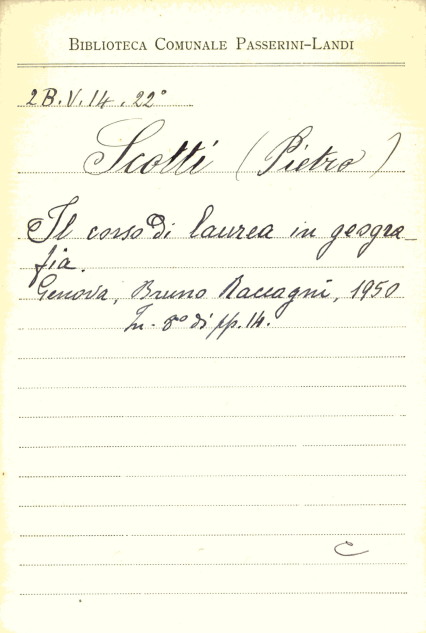 BIBLIOTECA COMUNALE PASSERINI-LANDI
2B.V.14.22°
Scotti (Pietro)
Il corso di laurea in geogra-
fia.
Genova, Bruno Raccagni, 1950
In-8° di pp. 14.
C